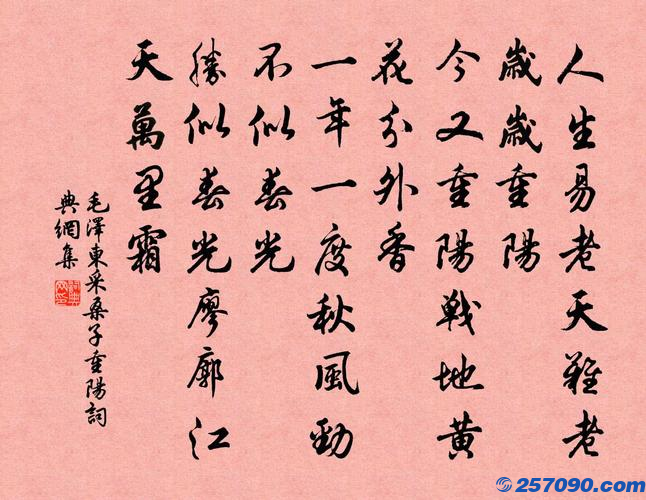 人生易老天難老
歲歲重陽
今又重陽戰地黃
花分外香
一年一度秋風勁
不似春光
勝似春光廖廓江
天萬里霜
毛澤東采桑子重陽詞
典網集
257090.com